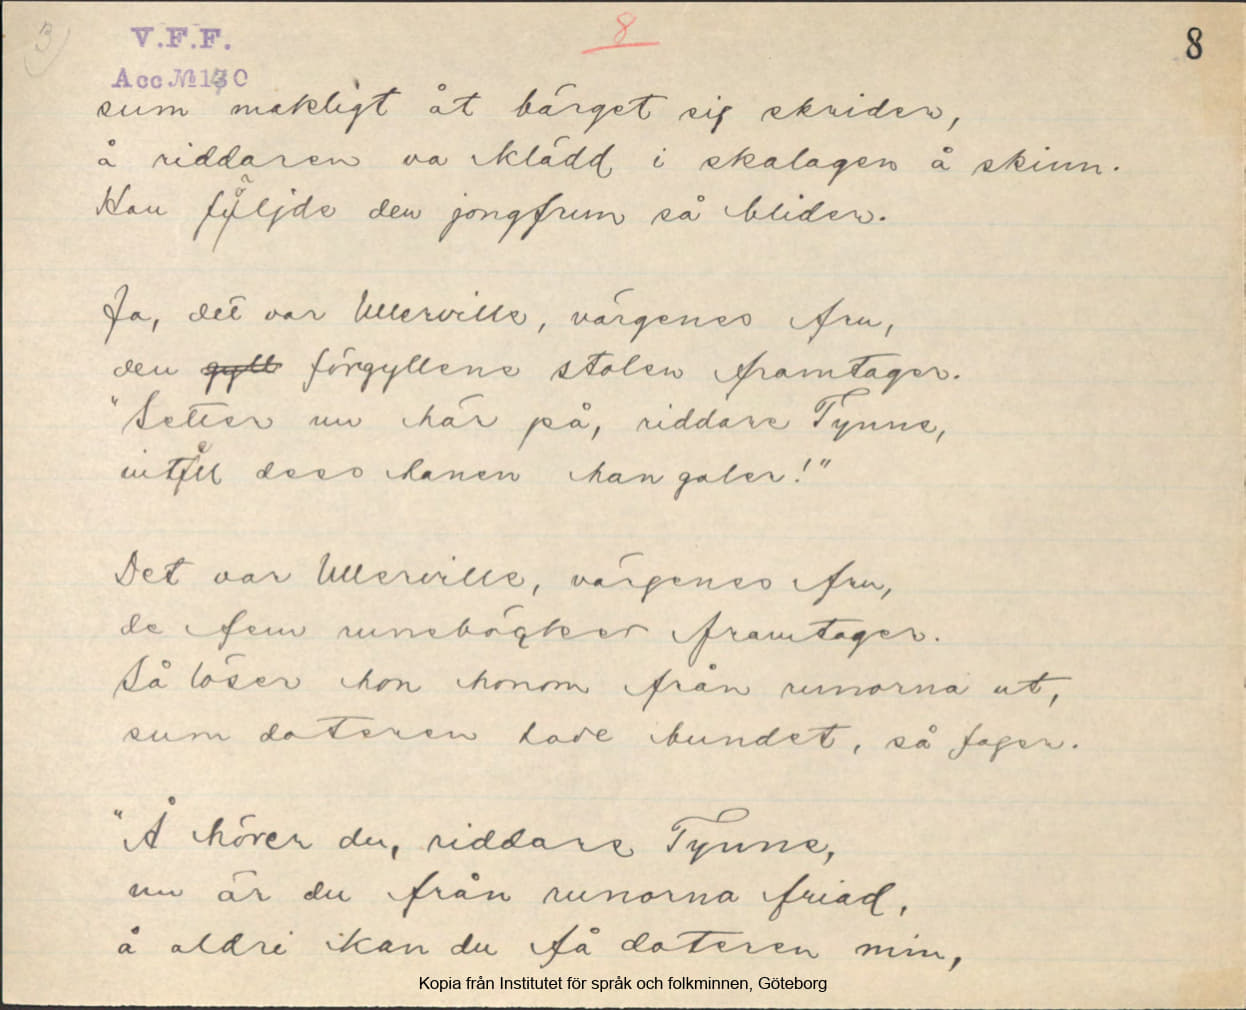 3
V.F.F.
8
8
Acc № 130
sum makligt åt bärget sig skrider,
å riddaren va klädd i skalagen å skinn.
Han följde den jongfrun så blider.
Ja, det var Ullerville, värgenes fru,
den gyll förgyllene stolen framtager.
"Setter nu här på, riddare Tynne,
intell dess hanen han galer!"
Det var Ullerville, värgenes fru,
de fem runeböcker framtager.
Så löser hon honom från runorna ut,
sum dateren hade bundet, så fager.
"Å hörer du, riddare Tynne,
nu är du från runorna friad,
å aldri kan du få dateren min,
Kopia från Institutet för språk och folkminnen, Göteborg